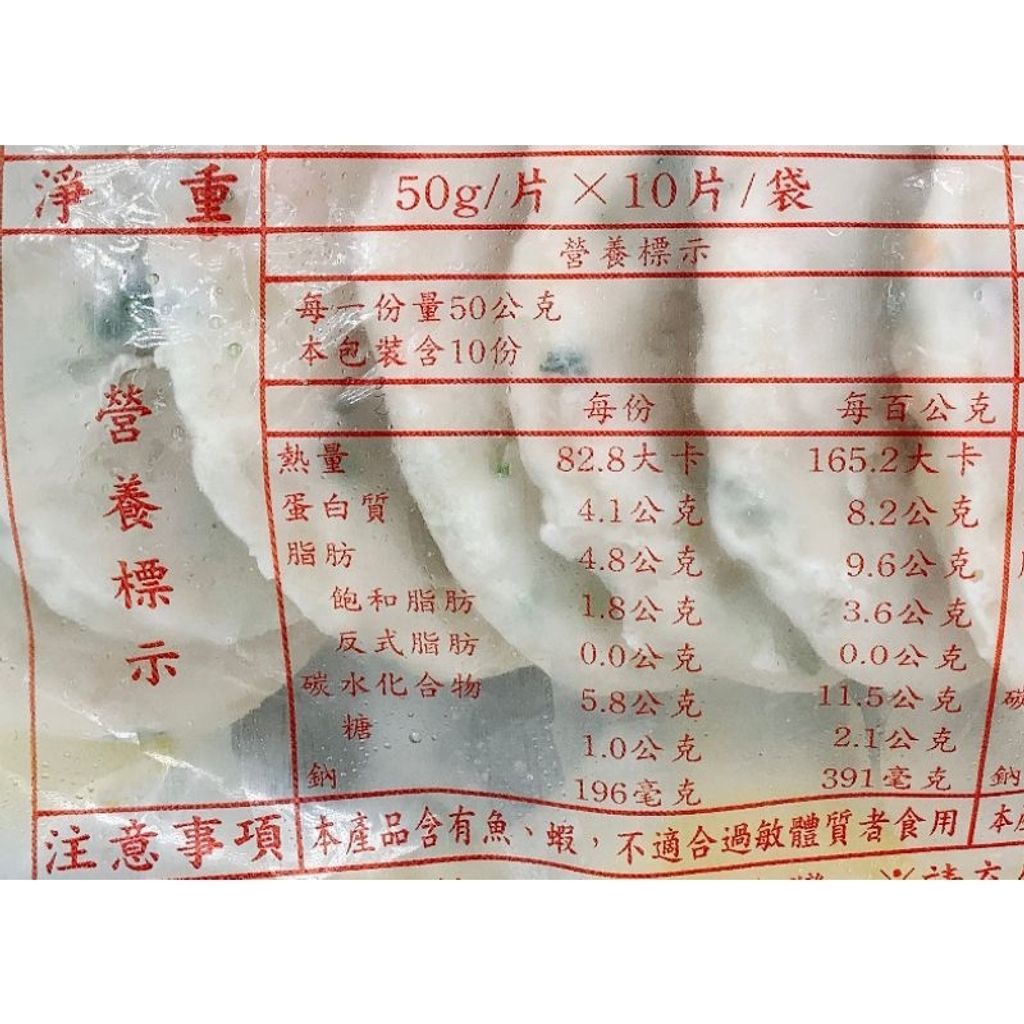 淨重 50g/片×10片/袋
營養標示
營養標示
每一份量50公克
本包裝含10份
每份 每百公克
熱量 82.8大卡 165.2大卡
蛋白質 4.1公克 8.2公克
脂肪 4.8公克 9.6公克
飽和脂肪 1.8公克 3.6公克
反式脂肪 0.0公克 0.0公克
碳水化合物 5.8公克 11.5公克
糖 1.0公克 2.1公克
鈉 196毫克 391毫克
注意事項 本產品含有魚、蝦，不適合過敏體質者食用
碳
鈉
本
※請